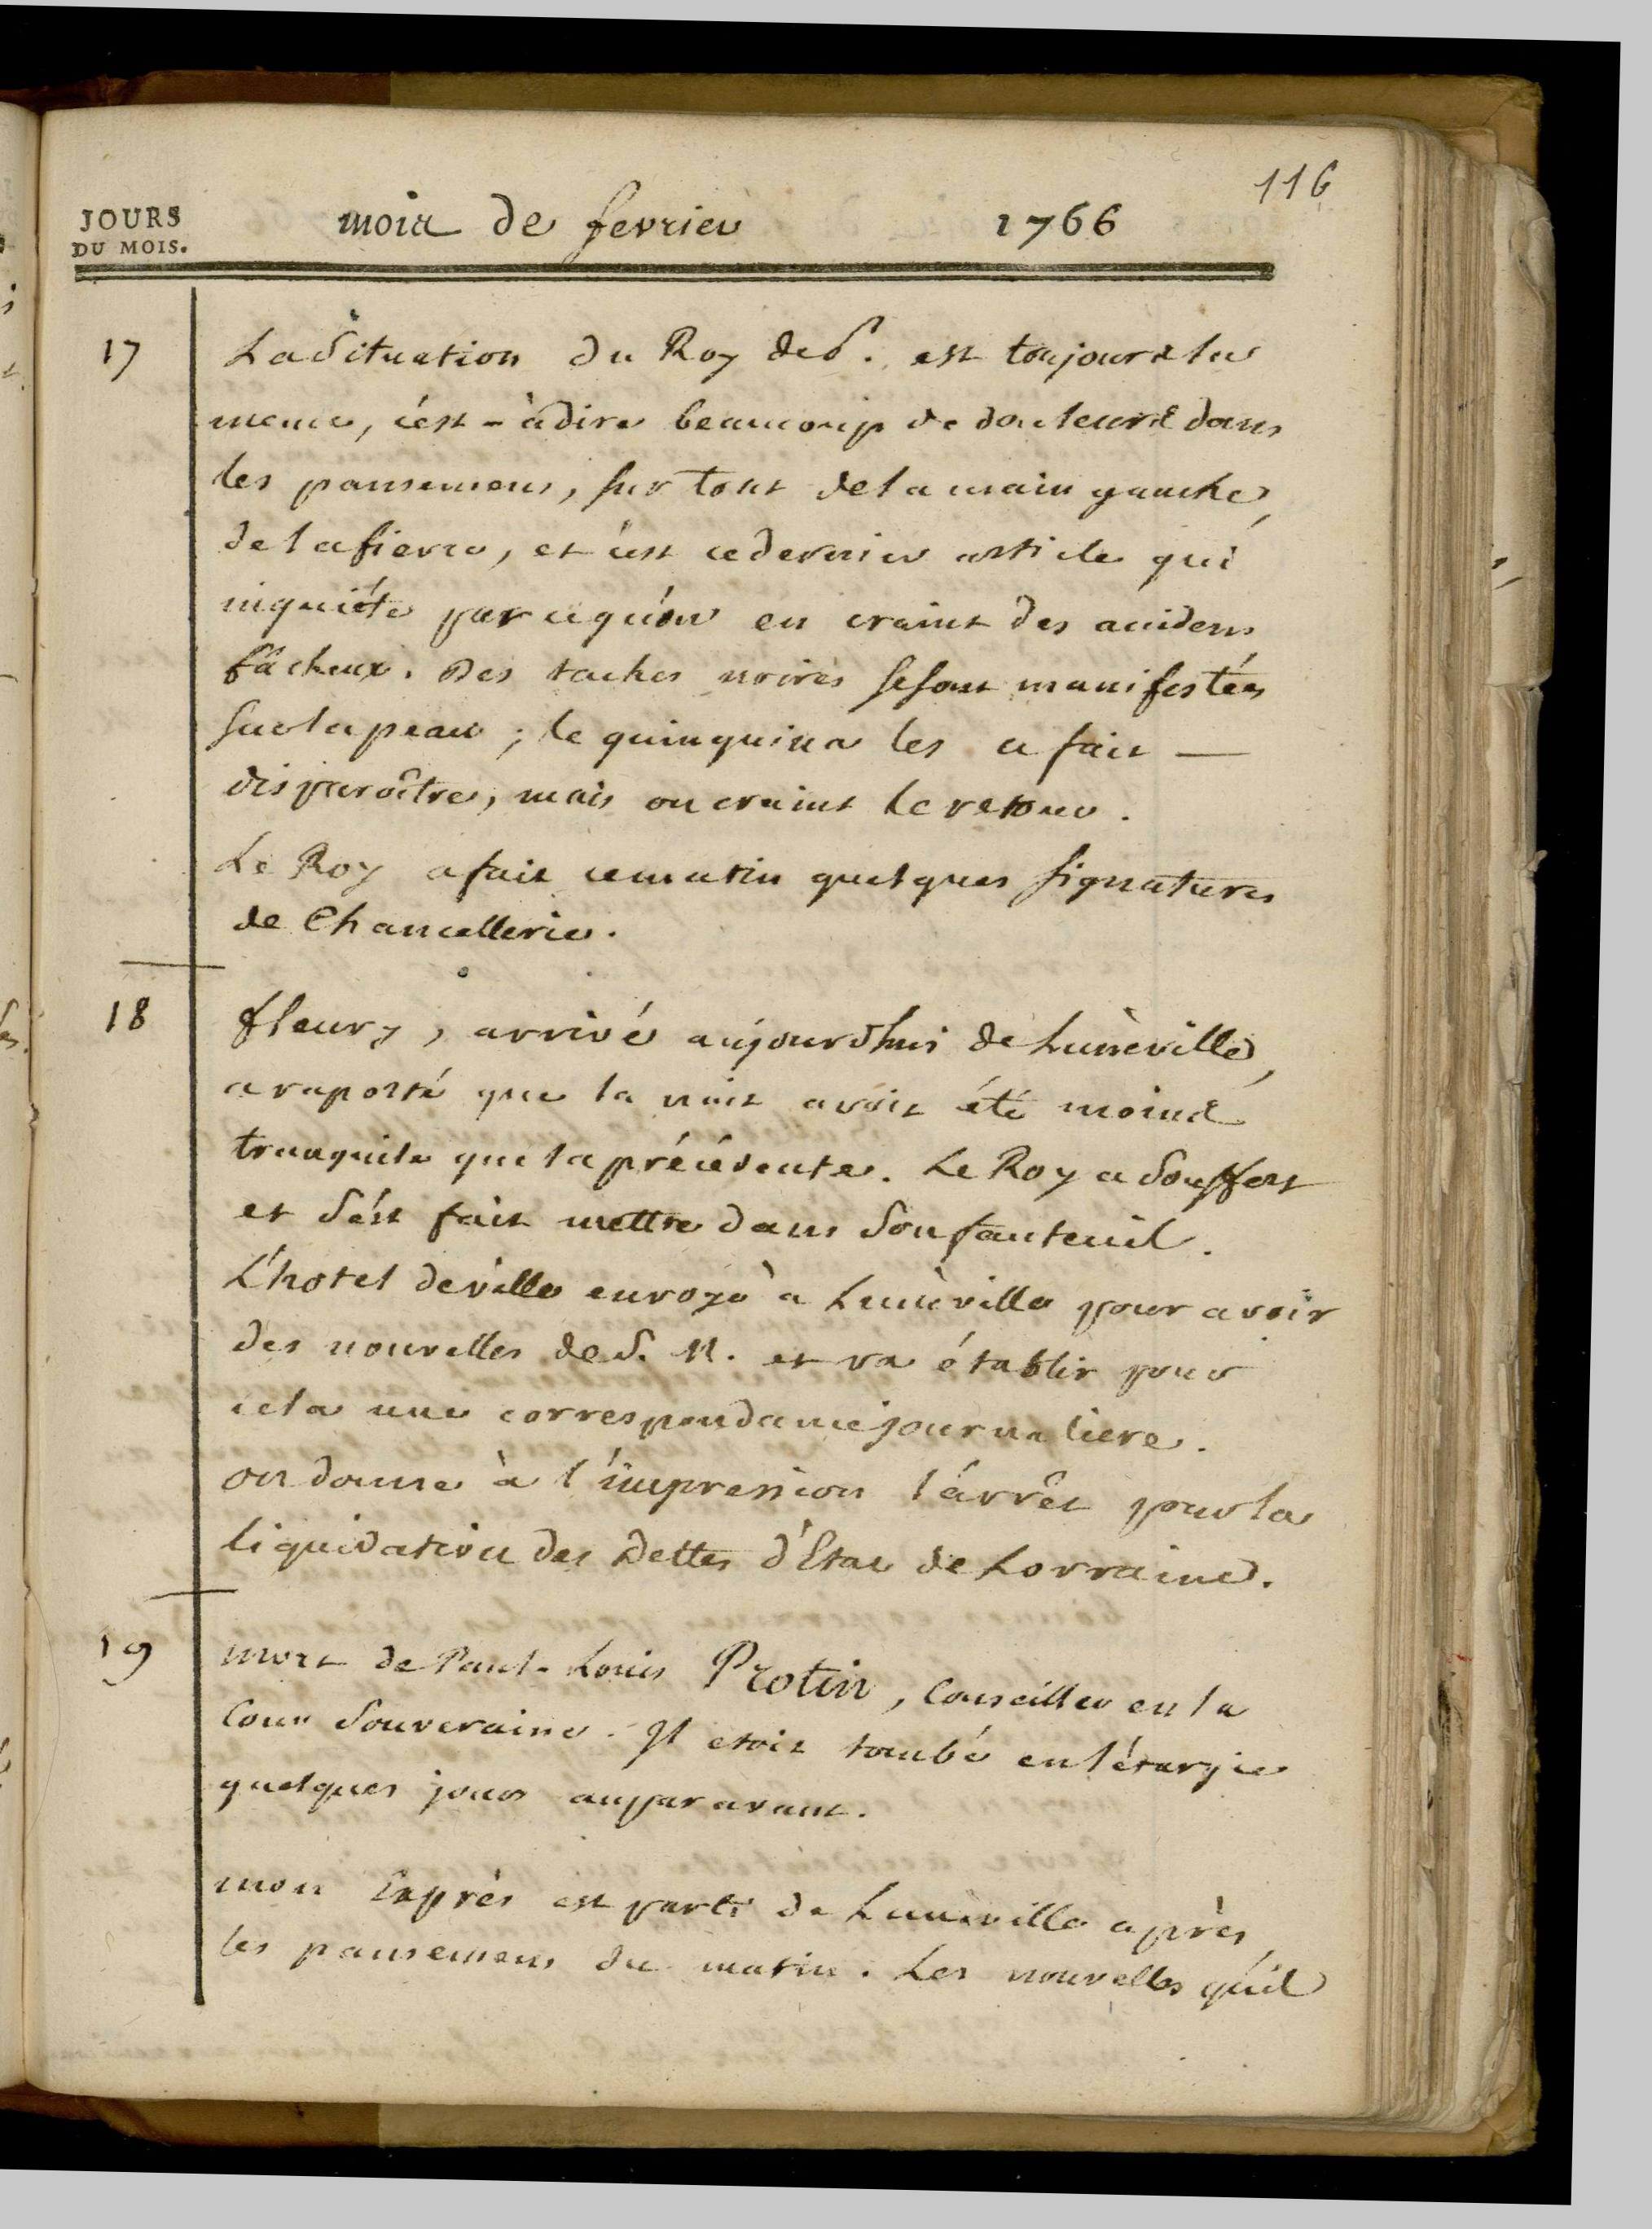 116
JOURS
DU MOIS.
mois de fevrier 1766
17 La Situation du Roy de P. est toujours la
meme, c'est-à dire beaucoup de douleurs dans
les pansemens, sur tout de la main gauche,
de la fievre, et c'est ce dernier article qui
inquiéte parcequ'on en craint des accidens
fâcheux. Des taches noires se sont manifestées
sur la peau ; le quinquina les a fait —
disparoître, mais on craint le retour.
Le Roy a fait ce matin quelques signatures
de Chancellerie.
18 fleury, arrivé aujourdhui de Lunéville,
a raporté que la nuit avoit été moins
tranquile que la précédente. Le Roy a Souffert
et S'est fait mettre dans Son fauteuil.
L'hotel de ville envoye à Lunéville pour avoir
des nouvelles de S. M. et va établir pour
cela une correspondance journaliere.
on donne à l'impression l'arrêt pour la
liquidation des Dettes d'Etat de Lorraine.
19 mort de Paul-Louis Protin, Conseiller en la
Cour Souveraine. Il etoit tombé en létargie
quelques jours auparavant.
mon Exprès est parti de Lunéville après
les pansemens du matin. Les nouvelles qu'il